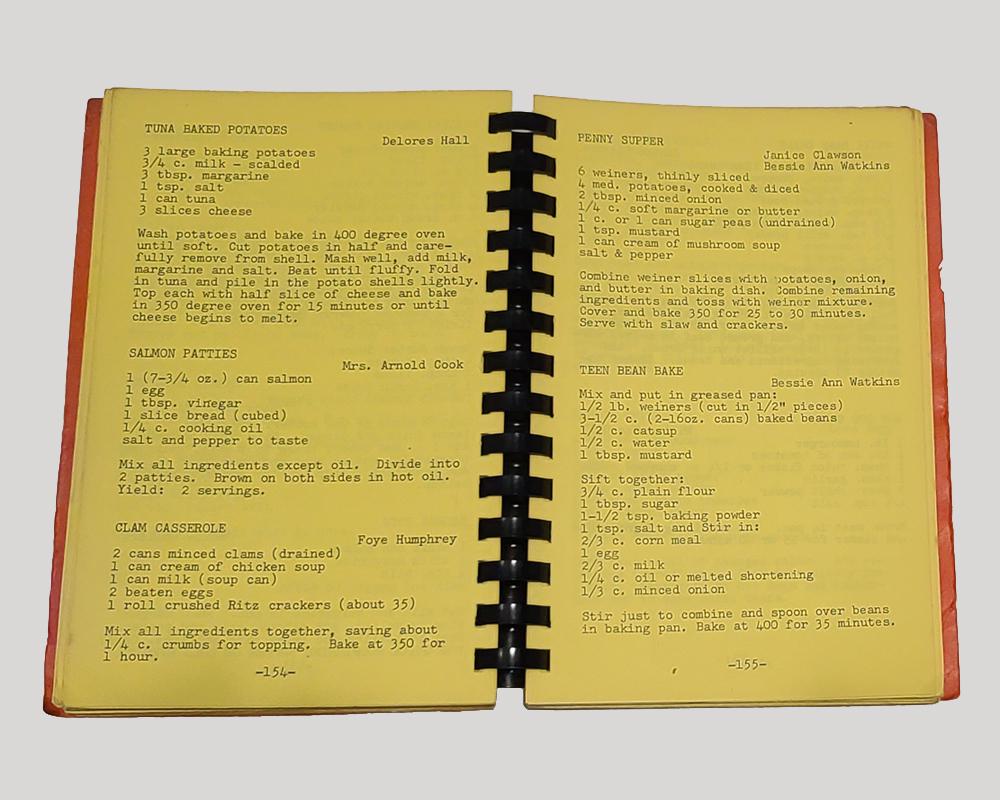 TUNA BAKED POTATOES
Delores Hall
3 large baking potatoes
3/4 c. milk - scalded
3 tbsp. margarine
1 tsp. salt
1 can tuna
3 slices cheese
Wash potatoes and bake in 400 degree oven
until soft. Cut potatoes in half and care-
fully remove from shell. Mash well, add milk,
margarine and salt. Beat until fluffy. Fold
in tuna and pile in the potato shells lightly.
Top each with half slice of cheese and bake
in 350 degree oven for 15 minutes or until
cheese begins to melt.
SALMON PATTIES
Mrs. Arnold Cook
1 (7-3/4 oz.) can salmon
1 egg
1 tbsp. vinegar
1 slice bread (cubed)
1/4 c. cooking oil
salt and pepper to taste
Mix all ingredients except oil. Divide into
2 patties. Brown on both sides in hot oil.
Yield: 2 servings.
CLAM CASSEROLE
Foye Humphrey
2 cans minced clams (drained)
1 can cream of chicken soup
1 can milk (soup can)
2 beaten eggs
1 roll crushed Ritz crackers (about 35)
Mix all ingredients together, saving about
1/4 c. crumbs for topping. Bake at 350 for
1 hour.
-154-
PENNY SUPPER
Janice Clawson
Bessie Ann Watkins
6 weiners, thinly sliced
4 med. potatoes, cooked & diced
2 tbsp. minced onion
1/4 c. soft margarine or butter
1 c. or 1 can sugar peas (undrained)
1 tsp. mustard
1 can cream of mushroom soup
salt & pepper
Combine weiner slices with potatoes, onion,
and butter in baking dish. Combine remaining
ingredients and toss with weiner mixture.
Cover and bake 350 for 25 to 30 minutes.
Serve with slaw and crackers.
TEEN BEAN BAKE
Bessie Ann Watkins
Mix and put in greased pan:
1/2 lb. weiners (cut in 1/2" pieces)
3-1/2 c. (2-16oz. cans) baked beans
1/2 c. catsup
1/2 c. water
1 tbsp. mustard
Sift together:
3/4 c. plain flour
1 tbsp. sugar
1-1/2 tsp. baking powder
1 tsp. salt and Stir in:
2/3 c. corn meal
1 egg
2/3 c. milk
1/4 c. oil or melted shortening
1/3 c. minced onion
Stir just to combine and spoon over beans
in baking pan. Bake at 400 for 35 minutes.
-155-